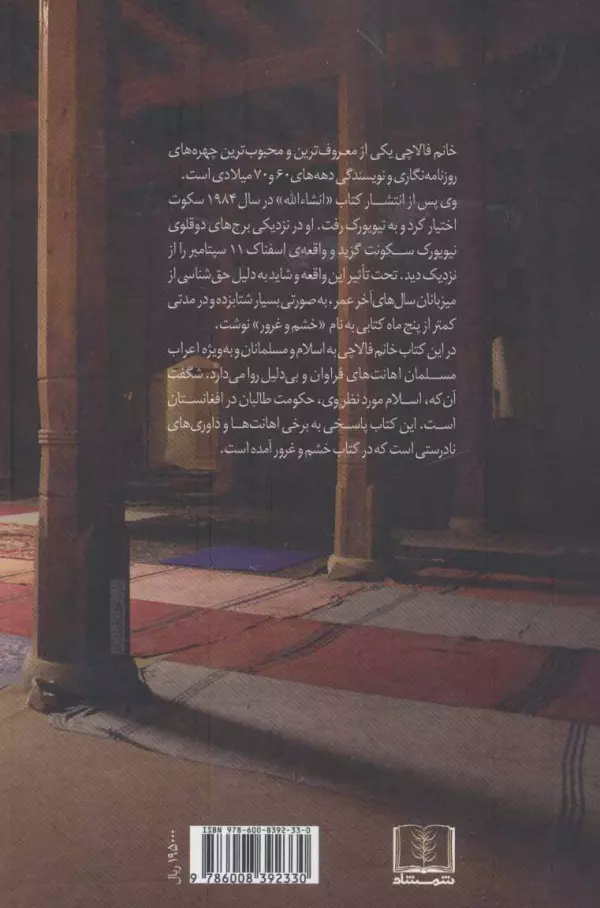 خانم فالاچی یکی از معروف‌ترین و محبوب‌ترین چهره‌های
روزنامه‌نگاری و نویسندگی دهه‌های ۶۰ و ۷۰ میلادی است.
وی پس از انتشار کتاب «انشاءالله» در سال ۱۹۸۴ سکوت
اختیار کرد و به نیویورک رفت. او در نزدیکی برج‌های دوقلوی
نیویورک سکونت گزید و واقعه‌ی اسفناک ۱۱ سپتامبر را از
نزدیک دید. تحت تأثیر این واقعه و شاید به دلیل حق‌شناسی از
میزبانان سال‌های آخر عمر، به‌صورتی بسیار شتابزده و در مدتی
کمتر از پنج ماه کتابی به نام «خشم و غرور» نوشت.
در این کتاب خانم فالاچی به اسلام و مسلمانان و به‌ویژه اعراب
مسلمان اهانت‌های فراوان و بی‌دلیل روا می‌دارد. شگفت
آن‌که، اسلام مورد نظر وی، حکومت طالبان در افغانستان
است. این کتاب پاسخی به برخی اهانت‌ها و داوری‌های
نادرستی است که در کتاب خشم و غرور آمده است.
ISBN 978-600-8392-33-0
9 786008 392330
۱۹۵۰۰۰ ریال
شمشاد